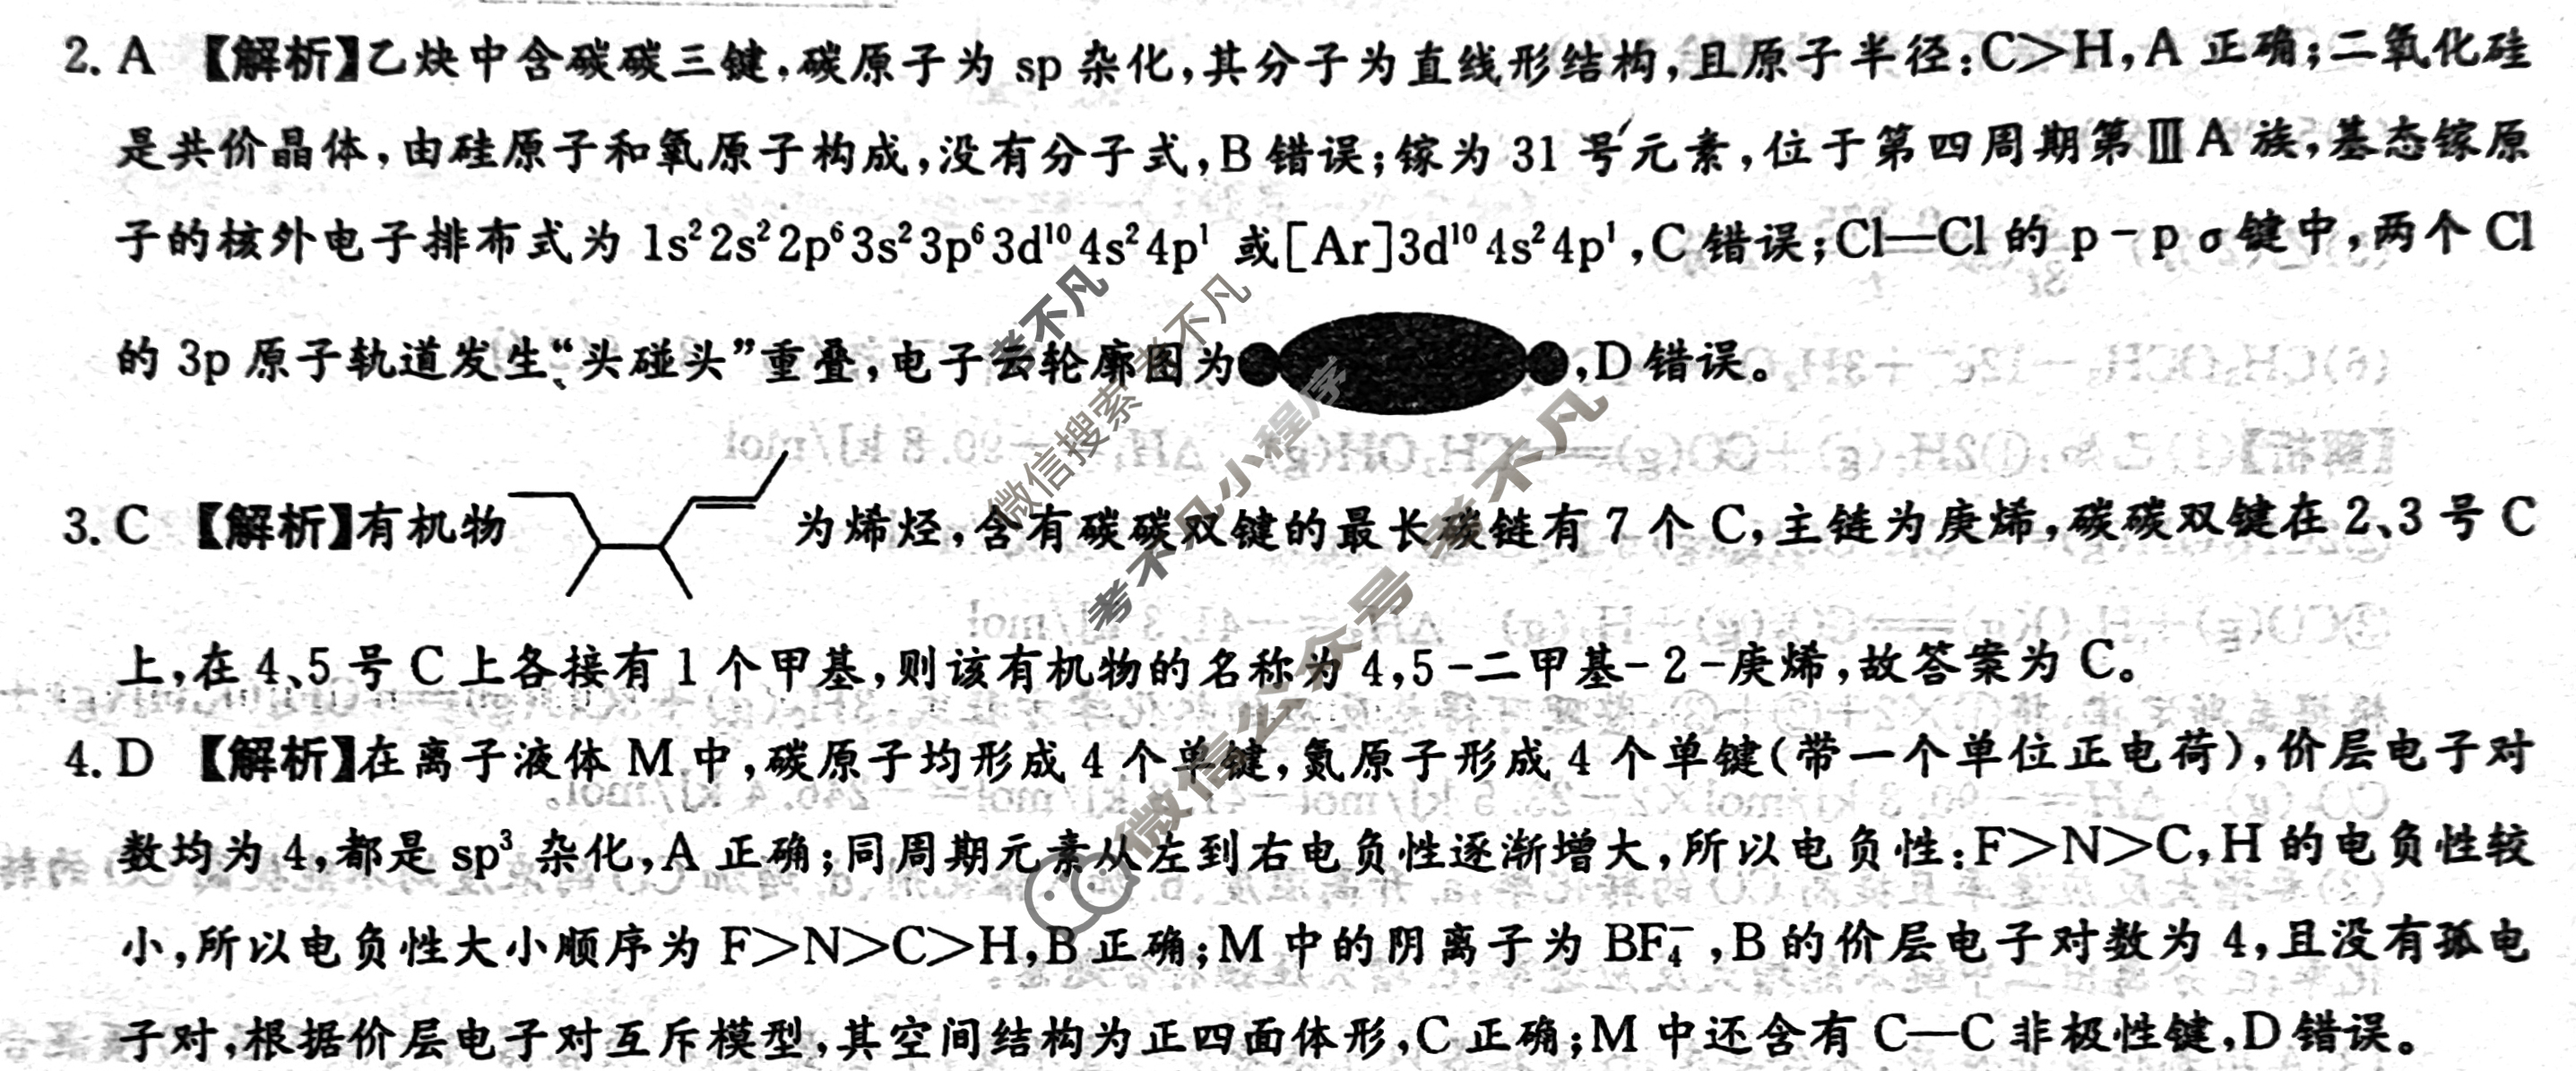 2. A 【解析】乙炔中含碳碳三键,碳原子为 sp 杂化,其分子为直线形结构,且原子半径:C>H,A 正确;二氧化硅
是共价晶体,由硅原子和氧原子构成,没有分子式,B 错误;镓为 31 号元素,位于第四周期第ⅢA 族,基态镓原
子的核外电子排布式为 1s²2s²2p⁶3s²3p⁶3d¹⁰4s²4p¹ 或[Ar]3d¹⁰4s²4p¹,C 错误;Cl—Cl 的 p-p σ 键中,两个 Cl
的 3p 原子轨道发生“头碰头”重叠,电子云轮廓图为,D 错误。
3. C 【解析】有机物为烯烃,含有碳碳双键的最长碳链有 7 个 C,主链为庚烯,碳碳双键在 2、3 号 C
上,在 4、5 号 C 上各接有 1 个甲基,则该有机物的名称为 4,5-二甲基-2-庚烯,故答案为 C。
4. D 【解析】在离子液体 M 中,碳原子均形成 4 个单键,氮原子形成 4 个单键(带一个单位正电荷),价层电子对
数均为 4,都是 sp³ 杂化,A 正确;同周期元素从左到右电负性逐渐增大,所以电负性:F>N>C,H 的电负性较
小,所以电负性大小顺序为 F>N>C>H,B 正确;M 中的阴离子为 BF₄⁻,B 的价层电子对数为 4,且没有孤电
子对,根据价层电子对互斥模型,其空间结构为正四面体形,C 正确;M 中还含有 C—C 非极性键,D 错误。
考不凡
微信搜索 考不凡
考不凡小程序
微信公众号 考不凡